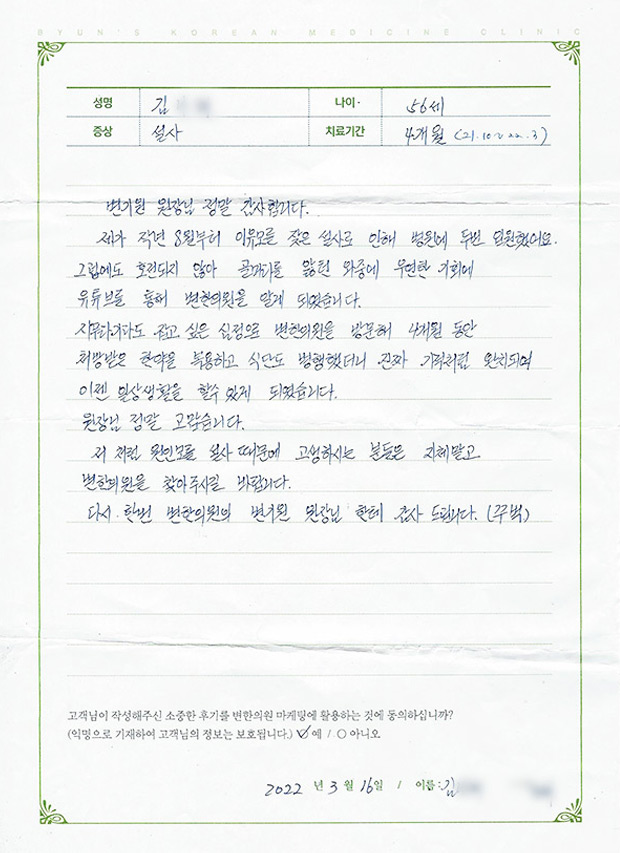 BYUN'S KOREAN MEDICINE CLINIC
성명 김 나이 56세
증상 설사 치료기간 4개월 (21.10~22.3)
변기원 원장님 정말 감사합니다.
제가 작년 8월부터 이유모를 잦은 설사로 인해 병원에 두번 입원했어요.
그럼에도 호전되지 않아 골머리를 앓던 와중에 우연한 기회에
유튜브를 통해 변한의원을 알게 되었습니다.
지푸라기라도 잡고 싶은 심정으로 변한의원을 방문해 4개월 동안
처방받은 한약을 복용하고 식단도 병행했더니 진짜 기적처럼 완치되어
이젠 일상생활을 할수 있게 되었습니다.
원장님 정말 고맙습니다.
저 처럼 원인모를 설사 때문에 고생하시는 분들은 지체말고
변한의원을 찾아주시길 바랍니다.
다시 한번 변한의원의 변기원 원장님 한테 감사 드립니다. (꾸벅)
고객님이 작성해주신 소중한 후기를 변한의원 마케팅에 활용하는 것에 동의하십니까?
(익명으로 기재하여 고객님의 정보는 보호됩니다.) 예 / 아니오
2022 년 3 월 16일 / 이름: 김